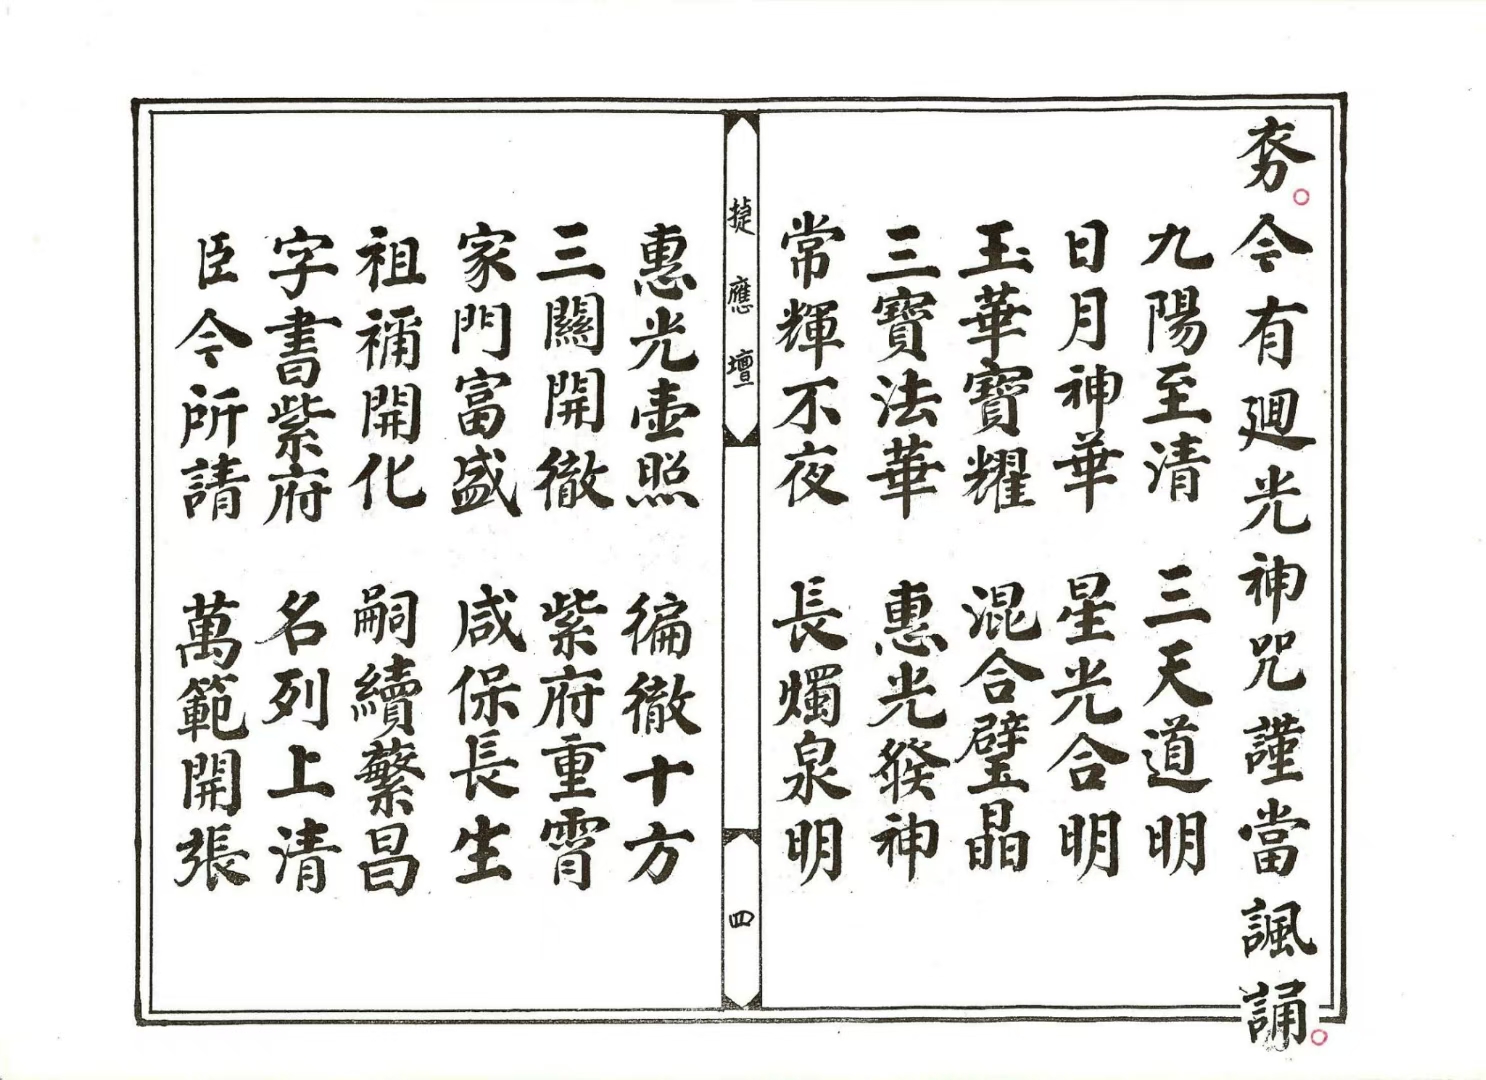 夯。今有廻光神咒謹當諷誦。
九陽至清 三天道明
日月神華 星光合明
玉華寶耀 混合璧晶
三寶法華 惠光發神
常輝不夜 長燭泉明
捷應壇
四
惠光壷照 徧徹十方
三關開徹 紫府重霄
家門富盛 咸保長生
祖禰開化 嗣續蘩昌
字書紫府 名列上清
臣今所請 萬範開張